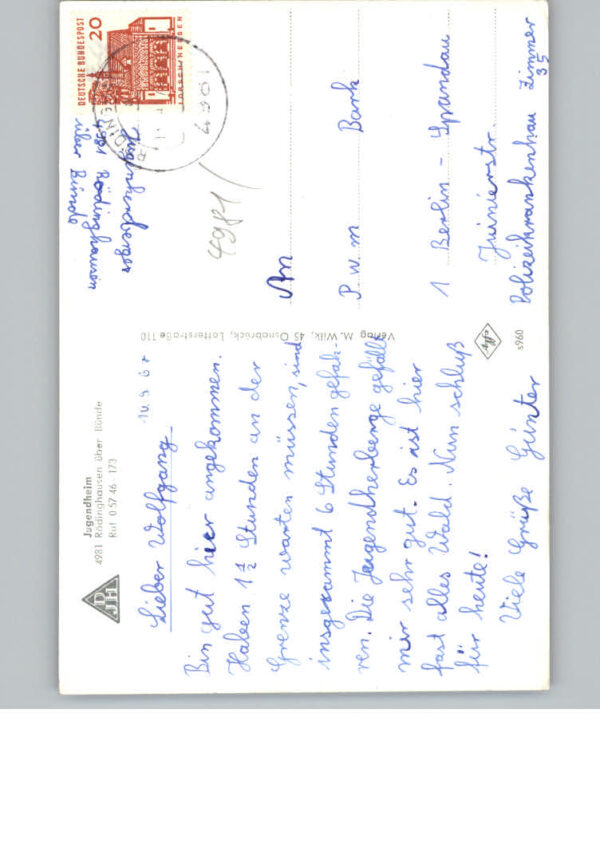 DJH
Jugendheim
4981 Rödinghausen über Bünde
Ruf 0 57 46 - 173
10.9.67
Lieber Wolfgang
Bin gut hier angekommen.
Haben 1 1/2 Stunden an der
Grenze warten müssen, sind
insgesammt 6 Stunden gefah-
ren. Die Jugendherberge gefällt
mir sehr gut. Es ist hier
fast alles Wald. Nun schluß
für heute!
Viele Grüße Günter
Verlag M. Wilk, 45 Osnabrück, Lotterstraße 110
s960
DEUTSCHE BUNDESPOST
20
LORSCH/HESSEN
Jugendherberge
4981 Rödinghausen
über Bünde
4981
An
P.w.m Bark
1 Berlin - Spandau
Polizeikrankenhau Zimmer
35